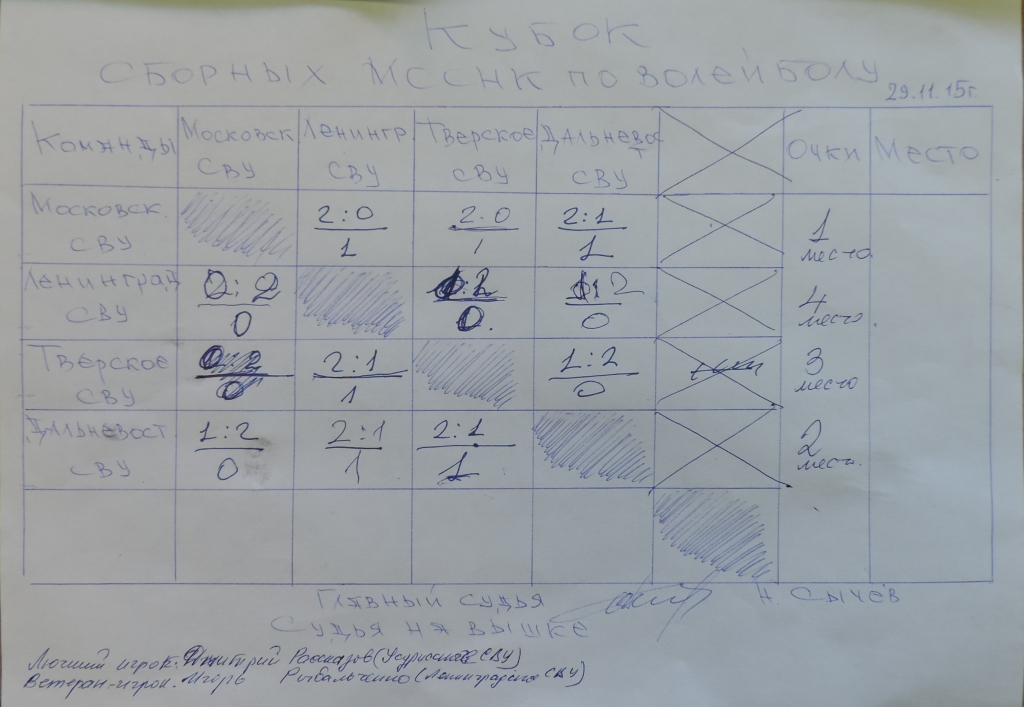 Кубок
СБОРНЫХ МССНК ПО ВОЛЕЙБОЛУ
29.11.15г.
Команды Московск СВУ Ленингр. СВУ Тверское СВУ Дальневост СВУ Очки Место
Московск. СВУ 2:0 1 2:0 1 2:1 1 1 место
Ленинград СВУ 0:2 0 1:2 0. 1:2 0 4 место.
Тверское СВУ 0:2 0 2:1 1 1:2 0 3 место
Дальневост СВУ 1:2 0 2:1 1 2:1 1 2 мест.
Главный судья Н. Сычёв
Судья на вышке
Лучший игрок: Дмитрий Рассказов (Уссурийское СВУ)
Ветеран-игрок. Игорь Рыбальченко (Ленинградское СВУ)